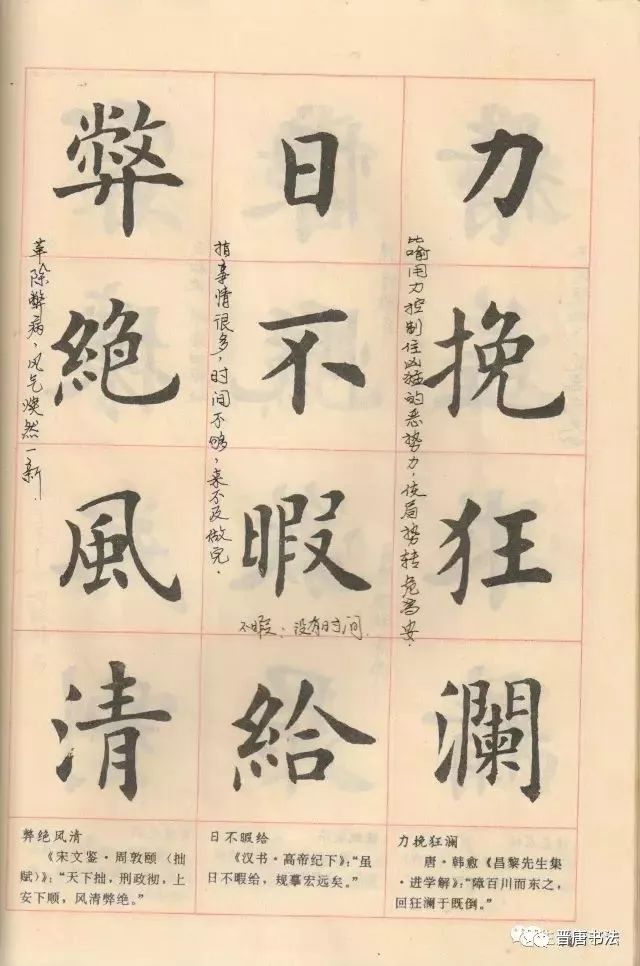 力挽狂瀾
比喻用力控制住凶猛的恶势力，使局势转危為安．
力挽狂澜
唐·韩愈《昌黎先生集
·进学解》：“障百川而东之，
回狂澜于既倒。”
日不暇給
指事情很多，时间不够，来不及做完．
不暇：没有时间．
日不暇给
《汉书·高帝纪下》：“虽
日不暇给，规摹宏远矣。”
弊絶風清
革除弊病，风气焕然一新．
弊绝风清
《宋文鉴·周敦颐〈拙
赋〉》：“天下拙，刑政彻，上
安下顺，风清弊绝。”
晋唐书法